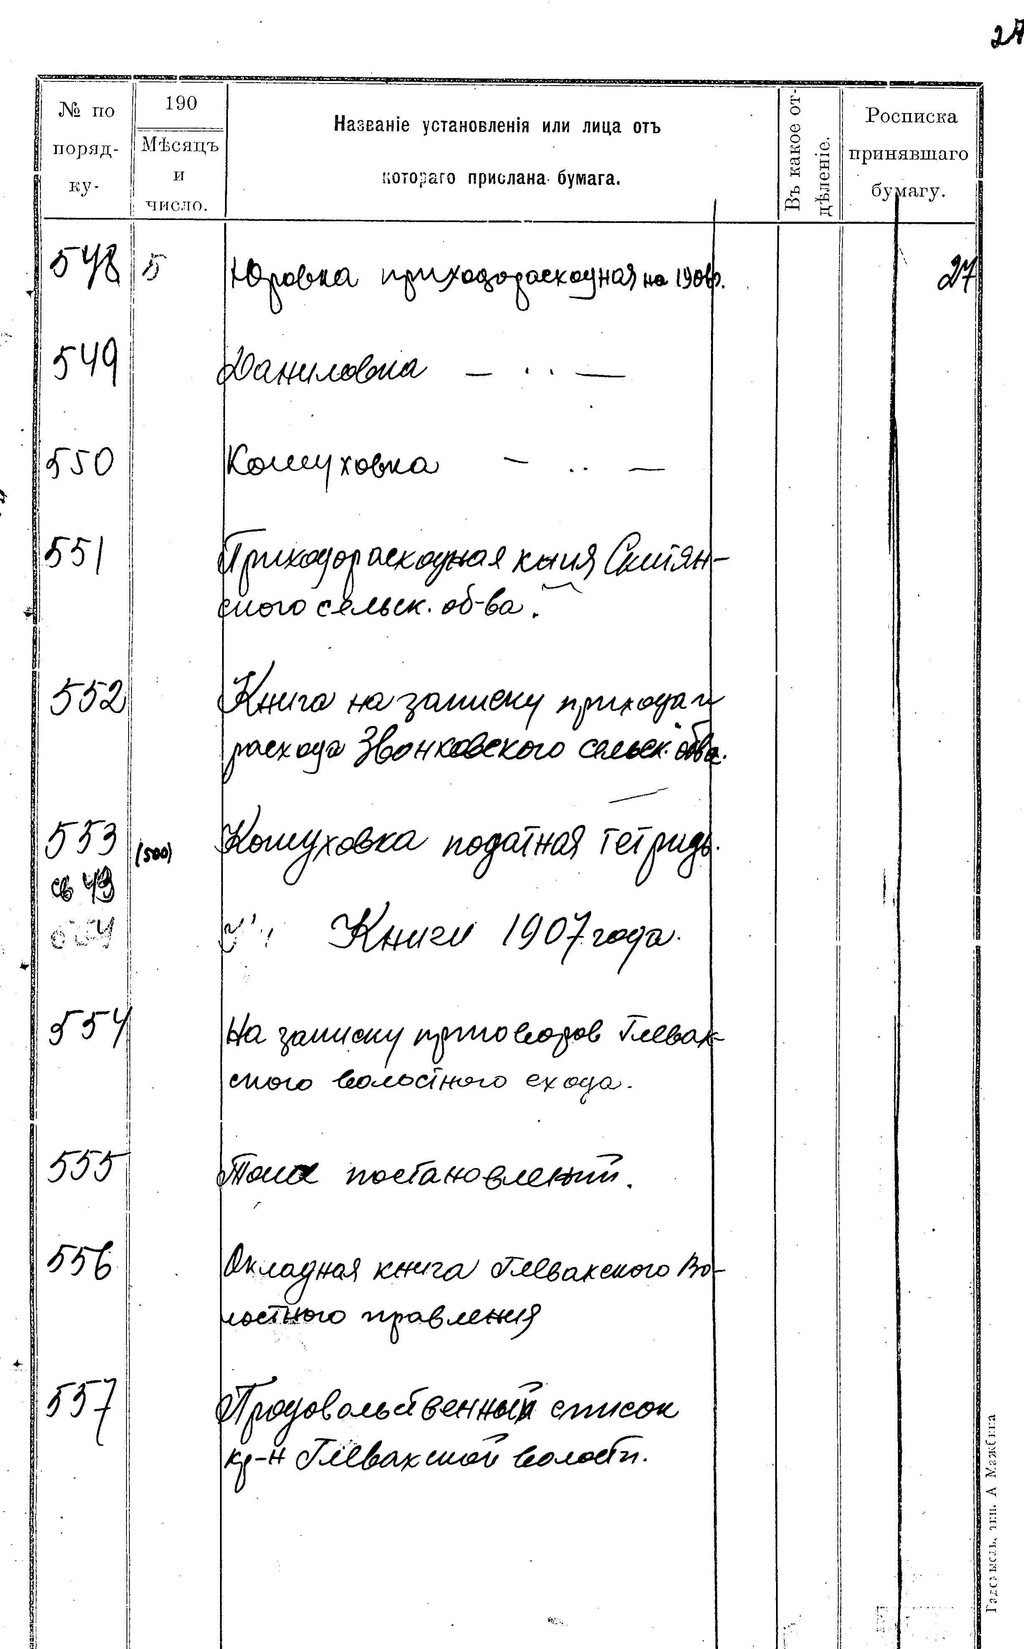 27
№ по поряд-ку-
190
Мѣсяцъ и число.
Названіе установленія или лица отъ
котораго прислана бумага.
Въ какое от-дѣленіе.
Росписка принявшаго бумагу.
548 5 Юровка приходорасходная на 1906 г. 27
549 Даниловка — ·· —
550 Кожуховка — ·· —
551 Приходорасходная книга
ского сельск. об-ва.
552 Книга на записку прихода и
расхода Звонковского сельск. об-ва.
553 (500) Кожуховка податная тетрадь.
св 43
554 Книги 1907 года.
554 На записку приговоров Глевак-
ского волостного схода.
555 Тоже постановлений.
556 Окладная книга Глевакского Во-
лостного правления
557 Продовольственный список
кр-н Глевахской волости.
тип. А Мажбица